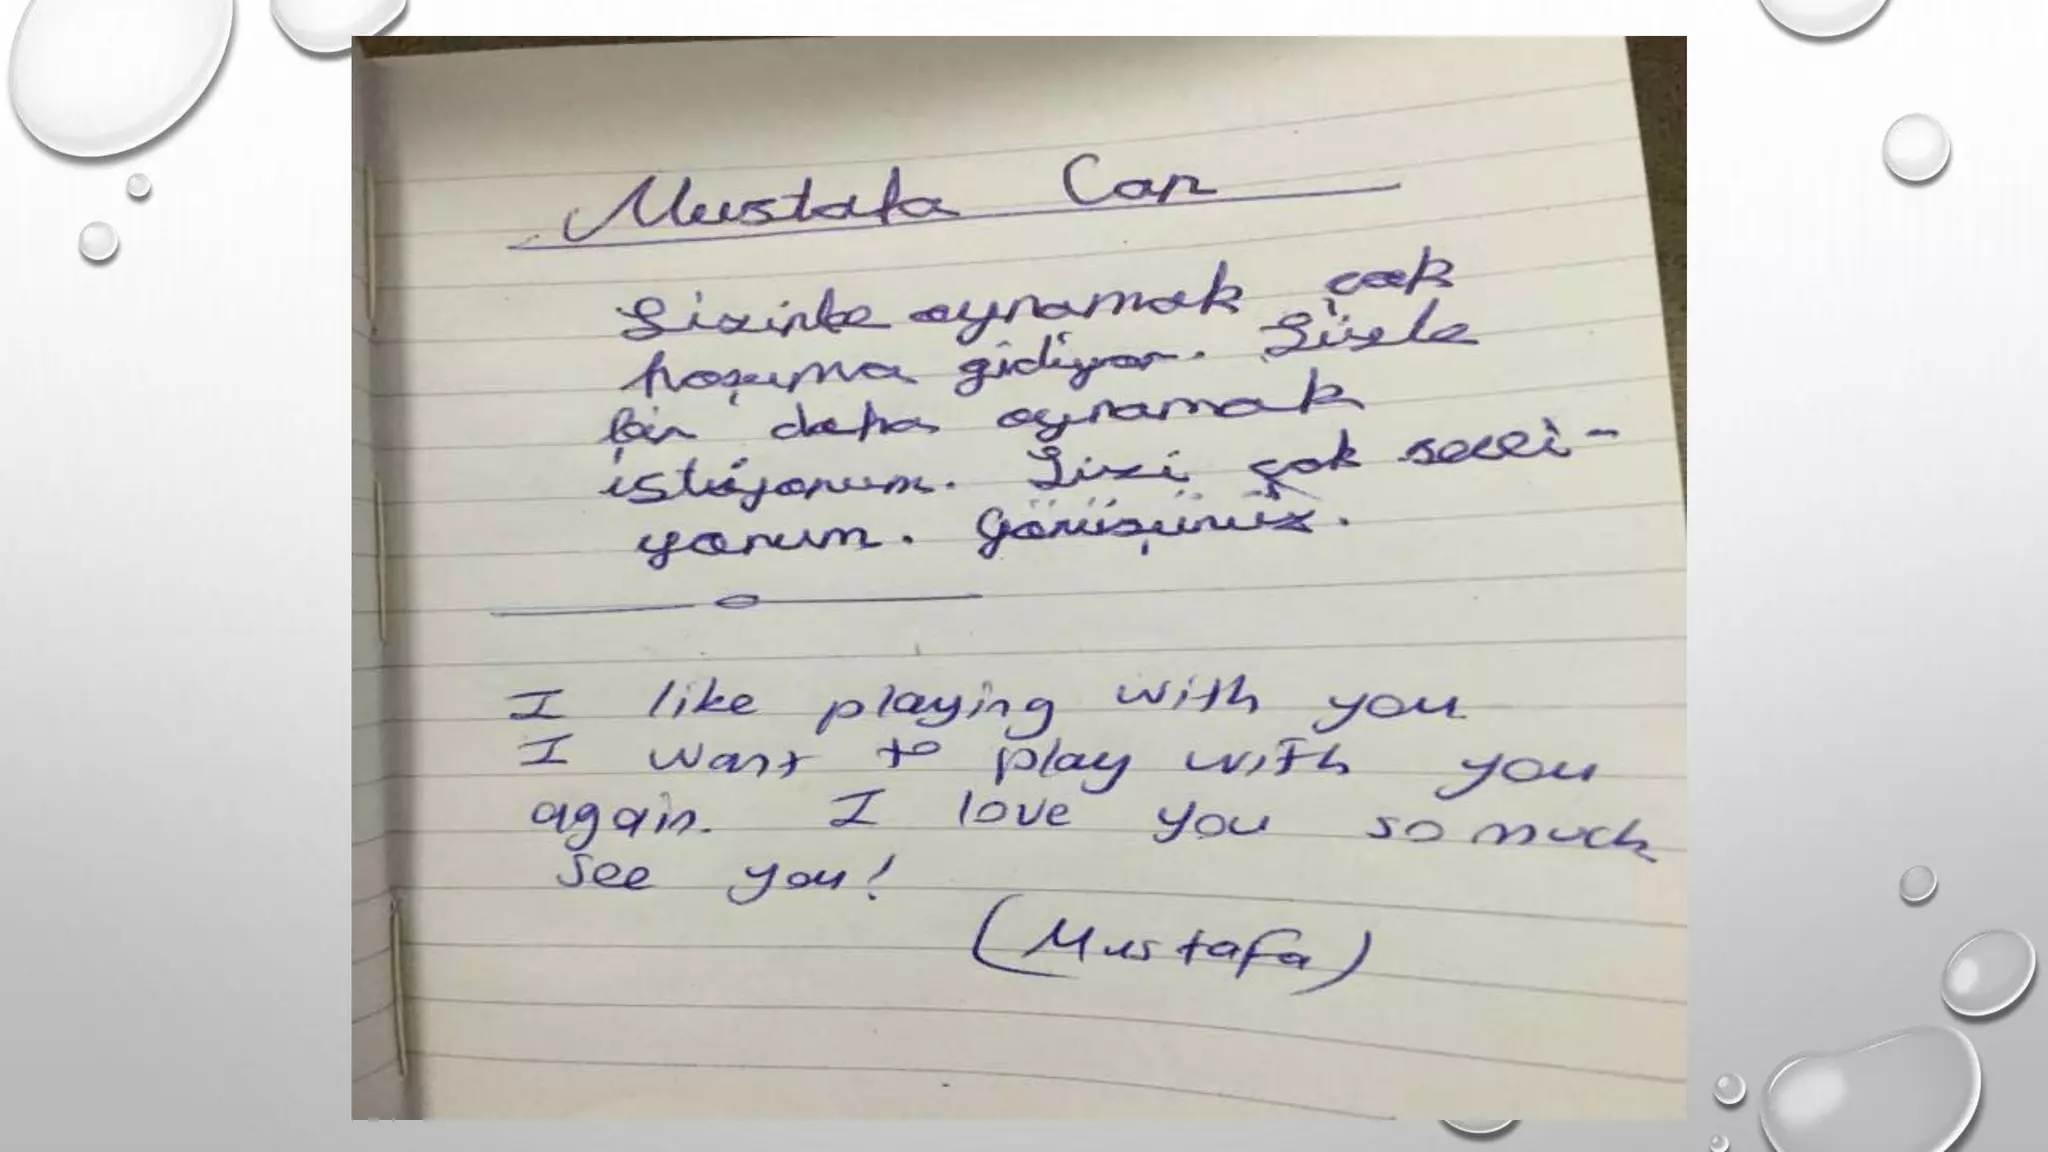 Mustafa Can
Sizinle oynamak çok
hoşuma gidiyor. Sizle
bir daha oynamak
istiyorum. Sizi çok sevi-
yorum. Görüşürüz.
I like playing with you
I want to play with you
again. I love you so much
see you!
(Mustafa)